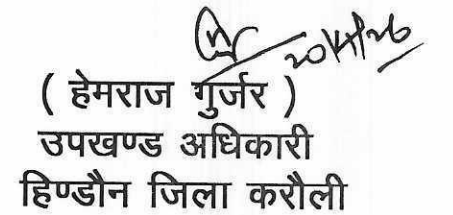 20/4/26
( हेमराज गुर्जर )
उपखण्ड अधिकारी
हिण्डौन जिला करौली